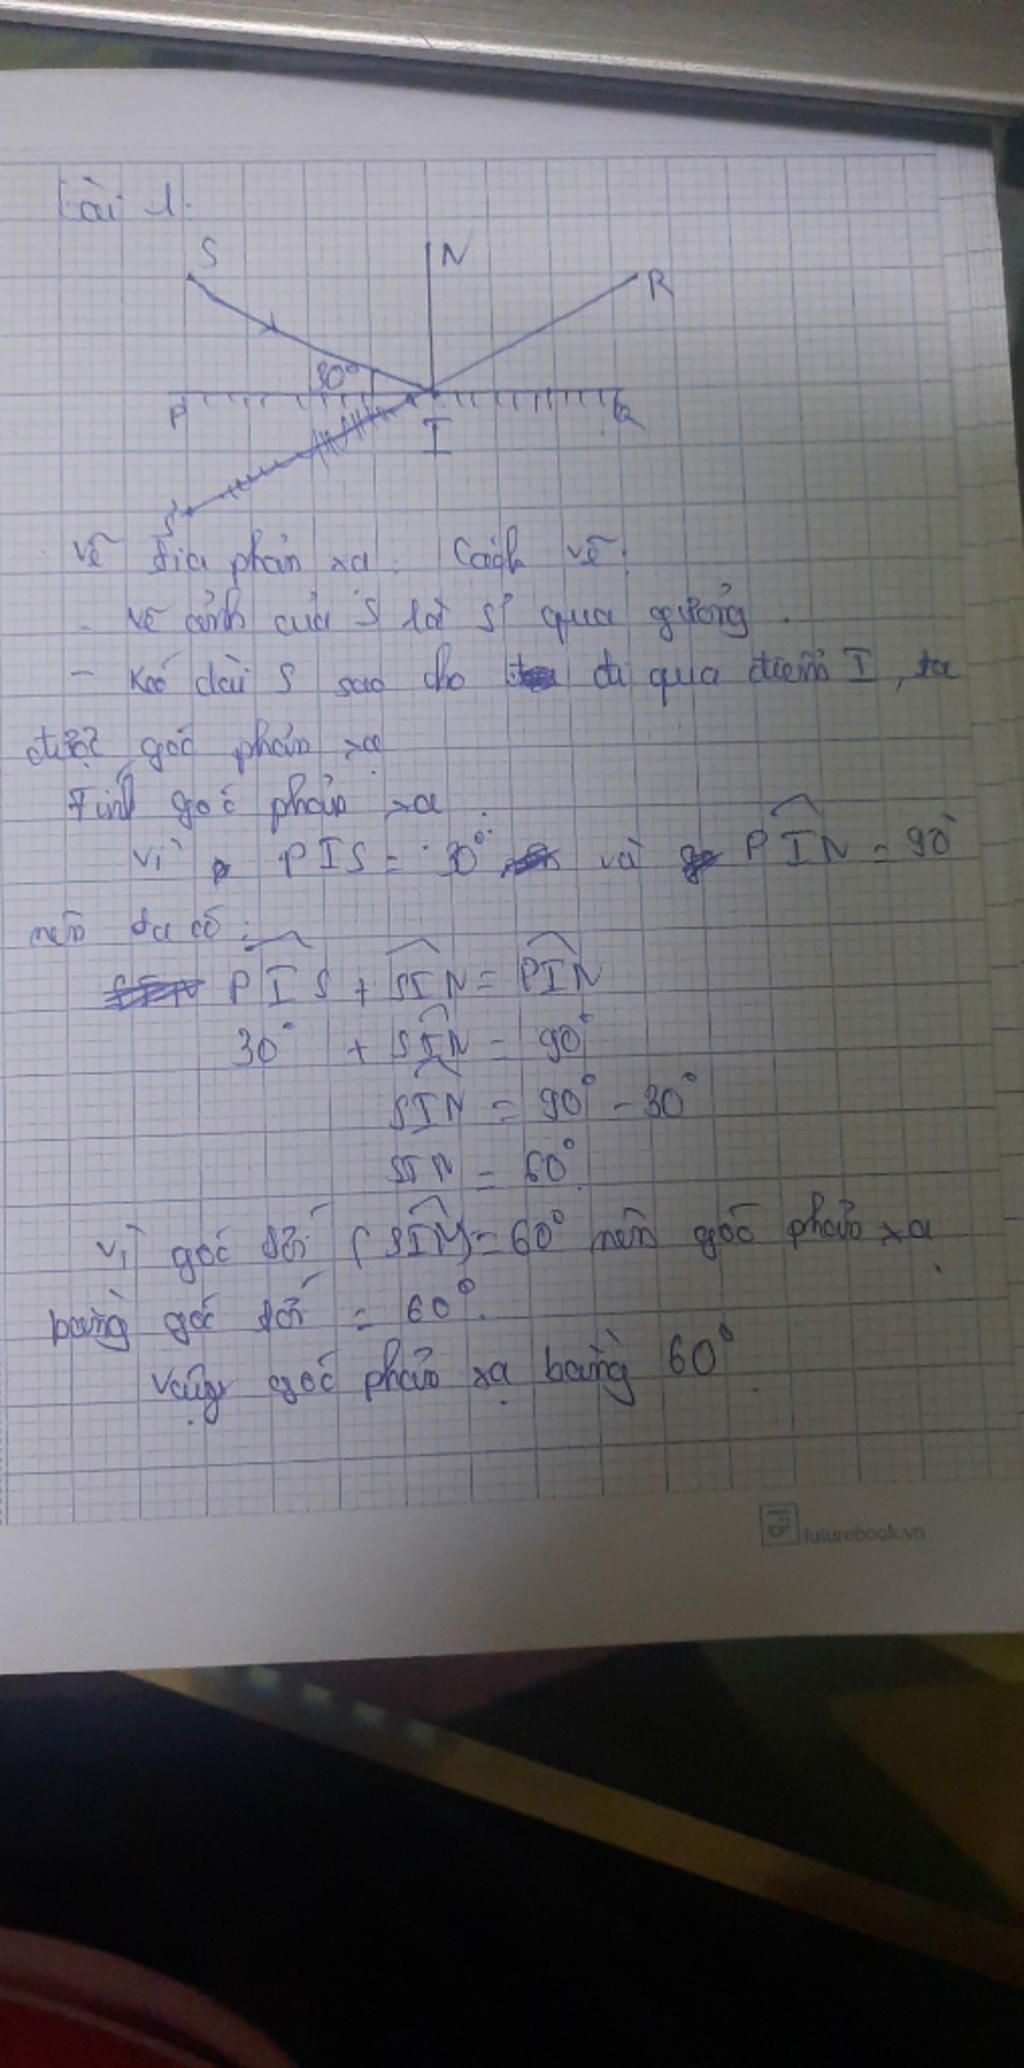 Bài 1.
S
N
R
30°
P
I
S'
Vẽ tia phản xạ. Cách vẽ:
- Vẽ ảnh của S là S' qua gương.
- Kéo dài S' sao cho đi qua điểm I, ta
được góc phản xạ
Tính góc phản xạ:
Vì PIS = 30° và PIN = 90°
nên ta có:
PIS + SIN = PIN
30° + SIN = 90°
SIN = 90° - 30°
SIN = 60°
Vì góc tới (SIN) = 60° nên góc phản xạ
bằng góc tới = 60°.
Vậy góc phản xạ bằng 60°
futurebook.vn